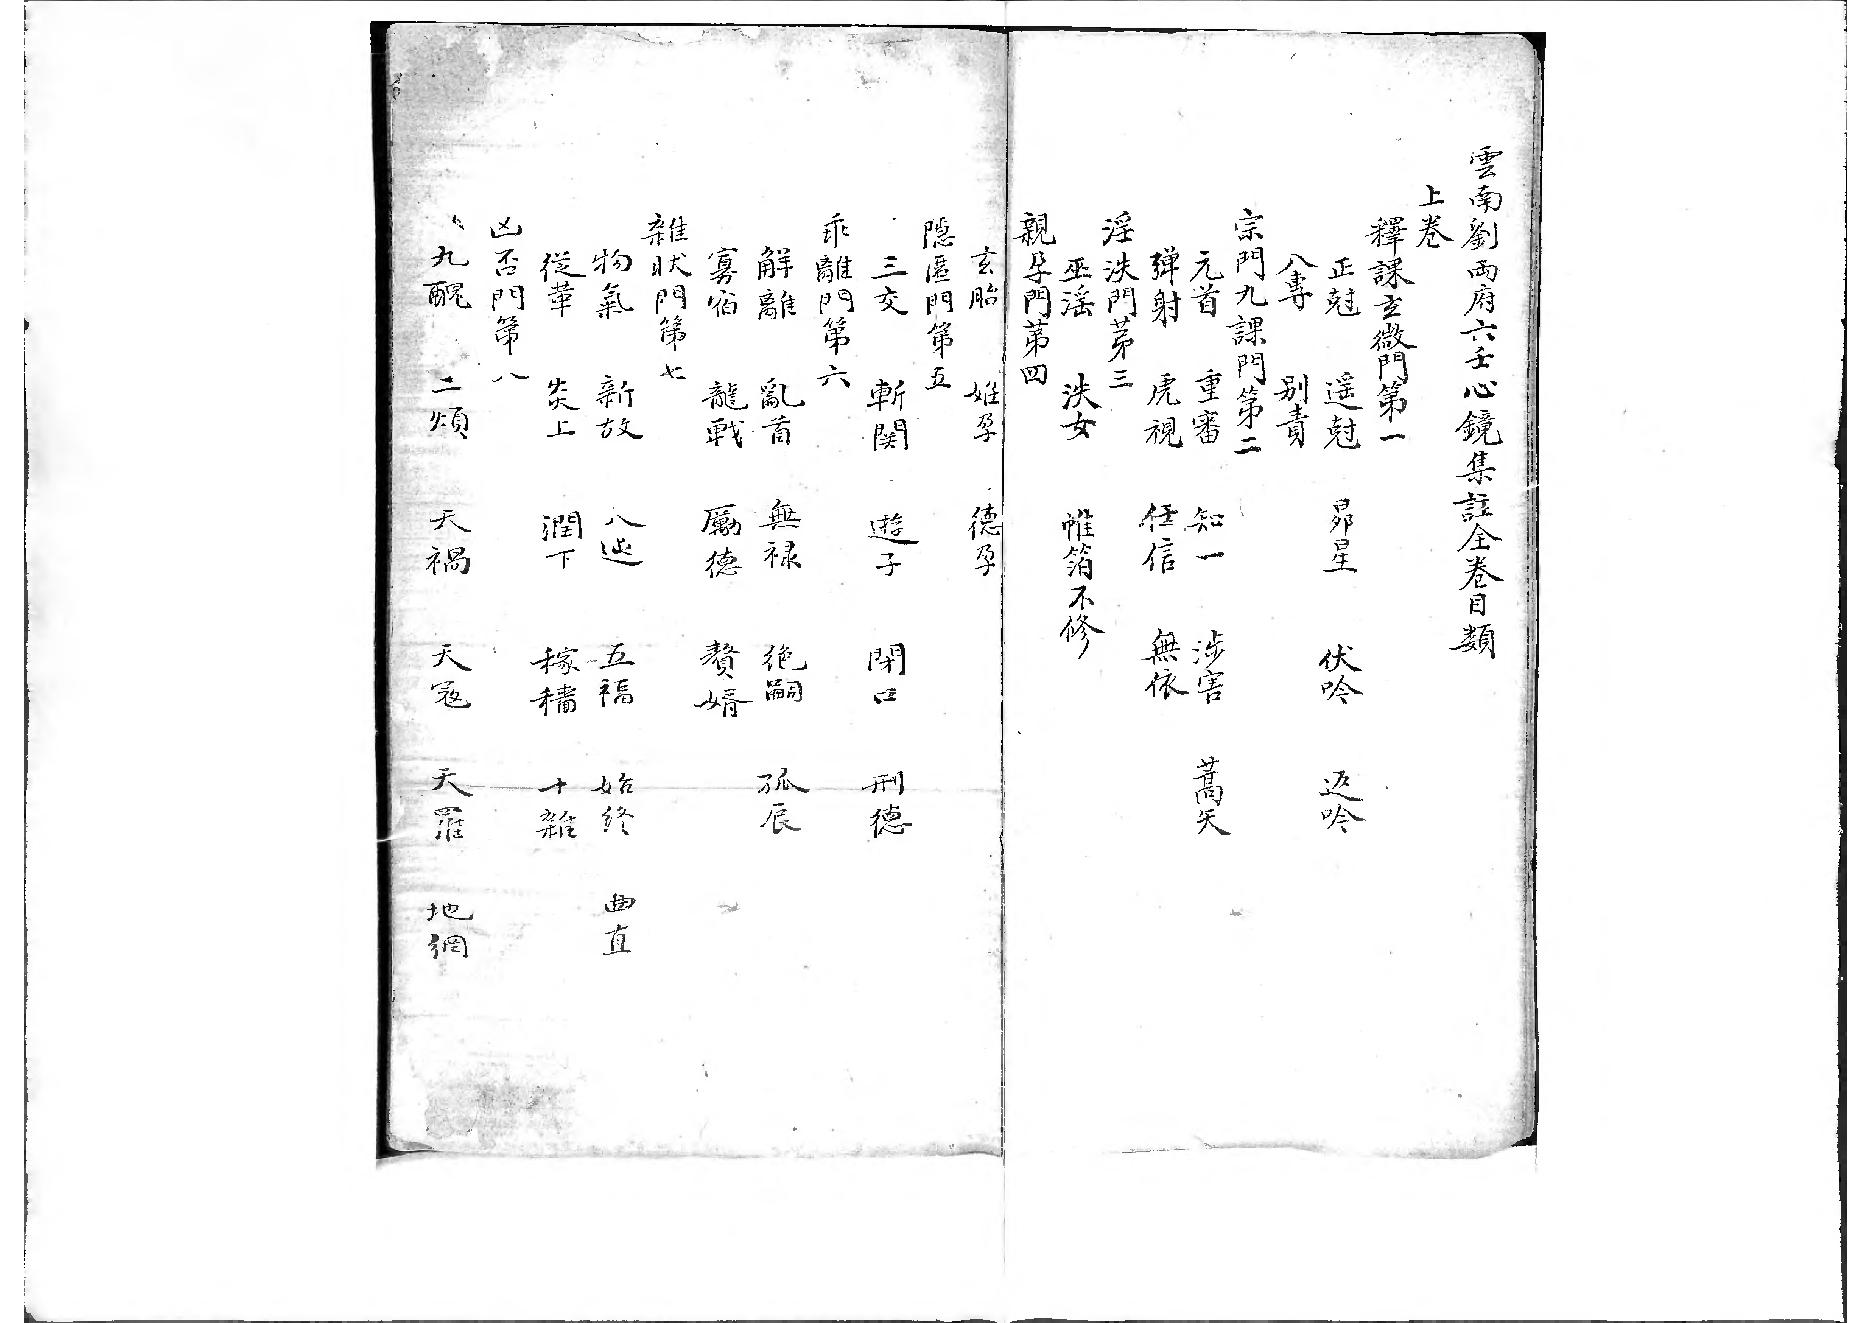 雲南劉両府六壬心鏡集註全卷目類
上卷
釋課玄微門第一
正尅 遥尅 昴星 伏吟 返吟
八專 别責
宗門九課門第二
元首 重審 知一 涉害 蒿矢
弹射 虎視 任信 無依
淫泆門苐三
巫淫 泆女 帷箔不修
親孕門苐四
玄胎 姙孕 德孕
隱匿門第五
三交 斬関 遊子 閉口 刑德
乖離門第六
解離 亂首 無禄 绝嗣 孤辰
寡宿 龍戰 厲德 贅婿
雜狀門第七
物氣 新故 八迍 五福 始終 曲直
從革 炎上 潤下 稼穡 十雜
凶否門第八
九醜 二煩 天禍 天寇 天羅 地網